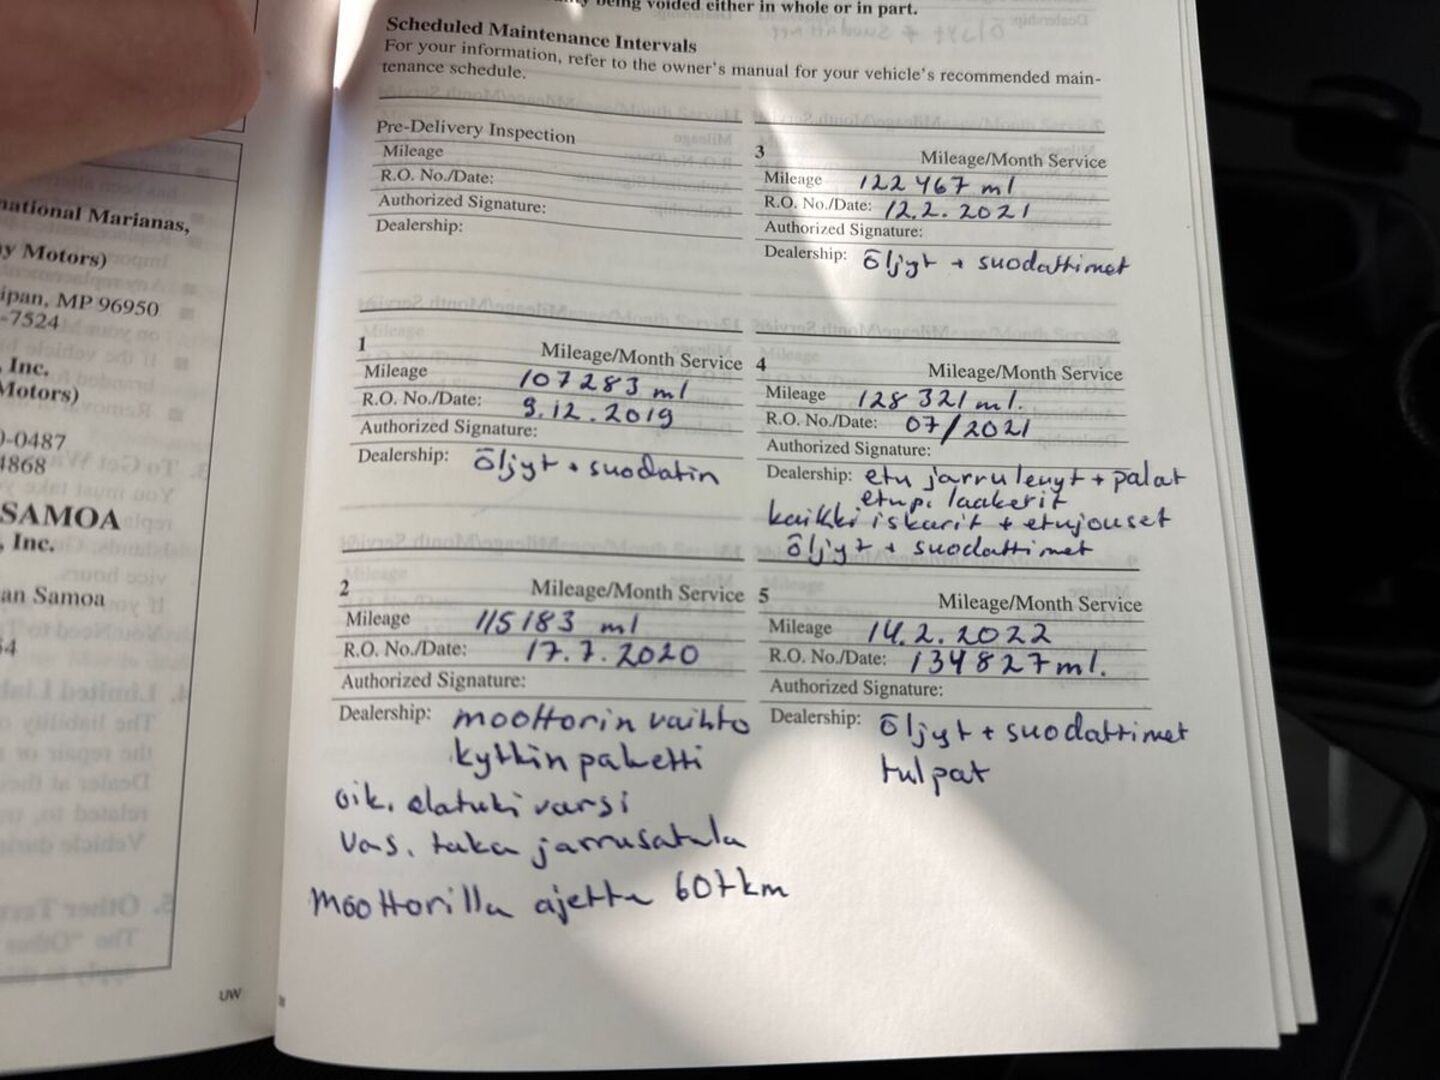 being voided either in whole or in part.
Scheduled Maintenance Intervals
For your information, refer to the owner's manual for your vehicle's recommended main-
tenance schedule.
Pre-Delivery Inspection
Mileage
R.O. No./Date:
Authorized Signature:
Dealership:
1
Mileage/Month Service
Mileage 107283 ml
R.O. No./Date: 9.12.2019
Authorized Signature:
Dealership: öljyt + suodatin
2
Mileage/Month Service
Mileage 115183 ml
R.O. No./Date: 17.7.2020
Authorized Signature:
Dealership: moottorin vaihto
kytkin paketti
oik. alatuki varsi
vas. taka jarrusatula
moottorilla ajettu 60tkm
3
Mileage/Month Service
Mileage 122467 ml
R.O. No./Date: 12.2.2021
Authorized Signature:
Dealership: öljyt + suodattimet
4
Mileage/Month Service
Mileage 128 321 ml.
R.O. No./Date: 07/2021
Authorized Signature:
Dealership: etu jarrulevyt + palat
etup. laakerit
kaikki iskarit + etujouset
öljyt + suodattimet
5
Mileage/Month Service
Mileage 14.2.2022
R.O. No./Date: 134827 ml.
Authorized Signature:
Dealership: öljyt + suodattimet
tulpat
national Marianas,
Motors)
ipan, MP 96950
-7524
, Inc.
Motors)
-0487
4868
SAMOA
, Inc.
an Samoa
UW